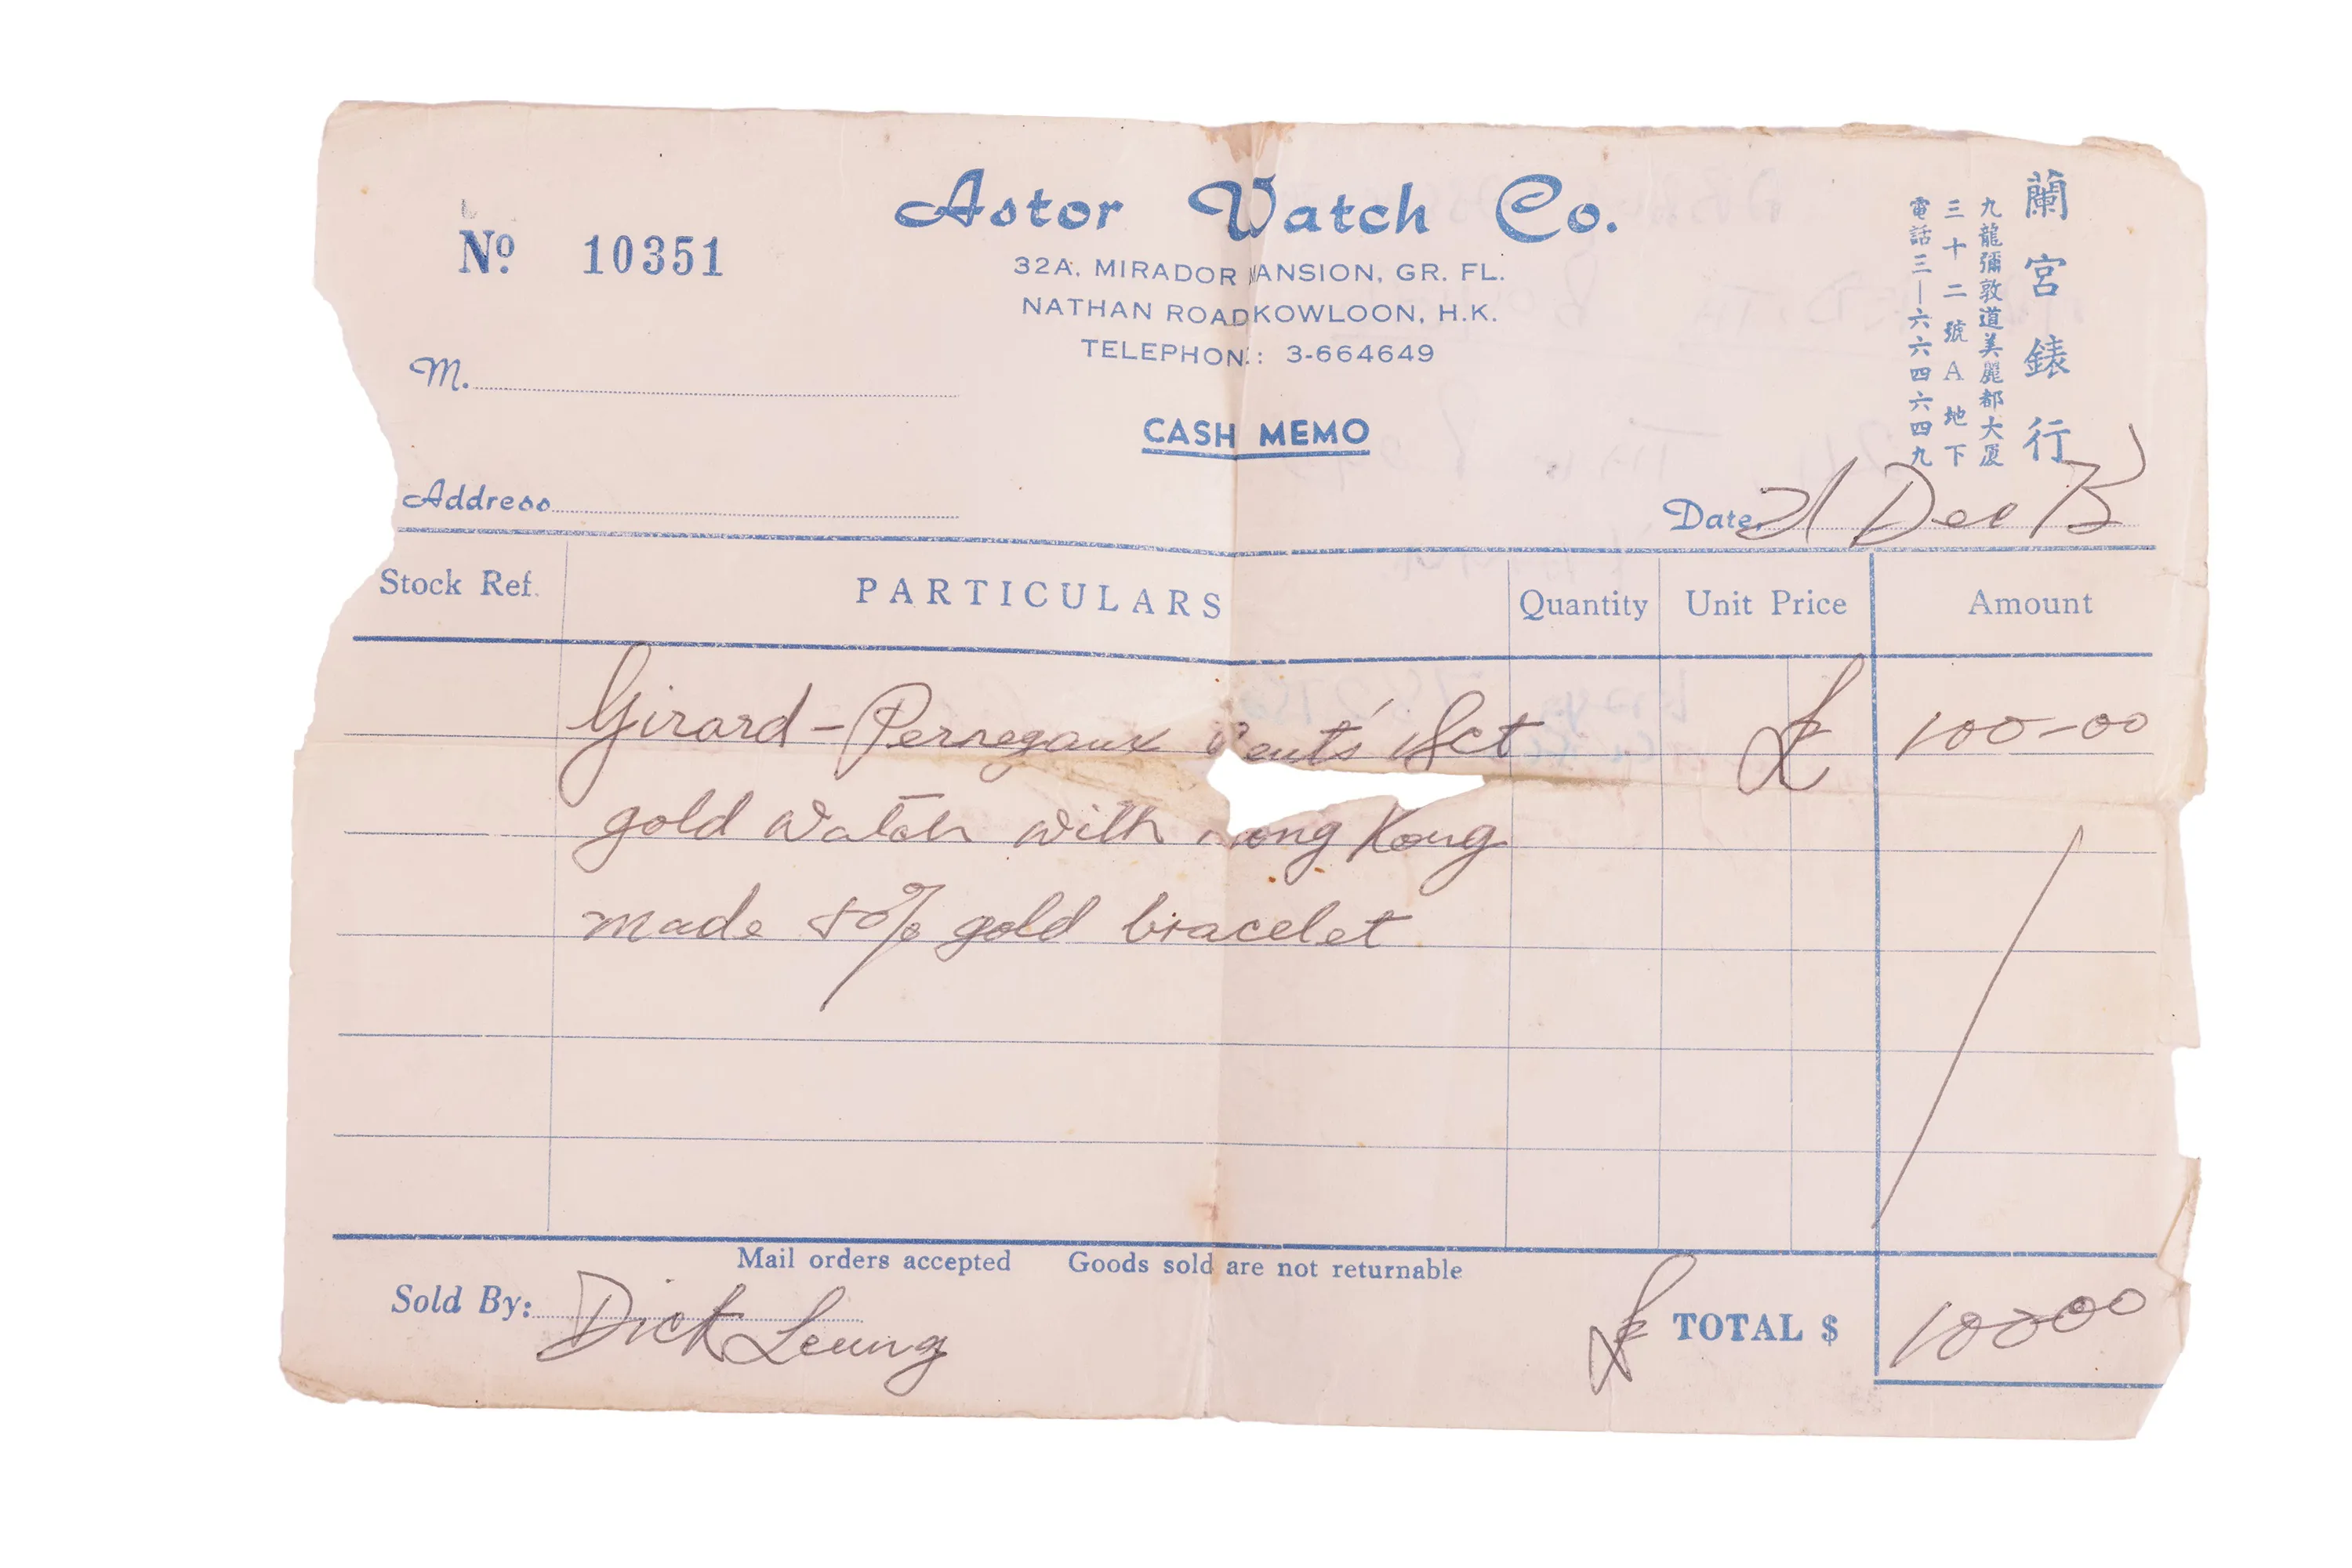 Nº 10351
Astor Watch Co.
32A, MIRADOR MANSION, GR. FL.
NATHAN ROAD KOWLOON, H.K.
TELEPHONE: 3-664649
蘭宮錶行
九龍彌敦道美麗都大廈
三十二號A地下
電話三—六六四六四九
M.
CASH MEMO
Address
Date 21 Dec
Stock Ref. PARTICULARS Quantity Unit Price Amount
Girard-Perregaux Gent's 18ct £ 100-00
gold watch with Hong Kong
made 80% gold bracelet
Mail orders accepted Goods sold are not returnable
Sold By: Dick Leung
£ TOTAL $ 100-00